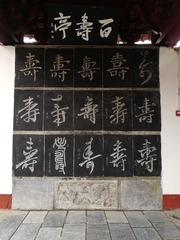 百壽亭
壽壽壽壽壽
壽壽壽壽壽
壽壽壽壽壽